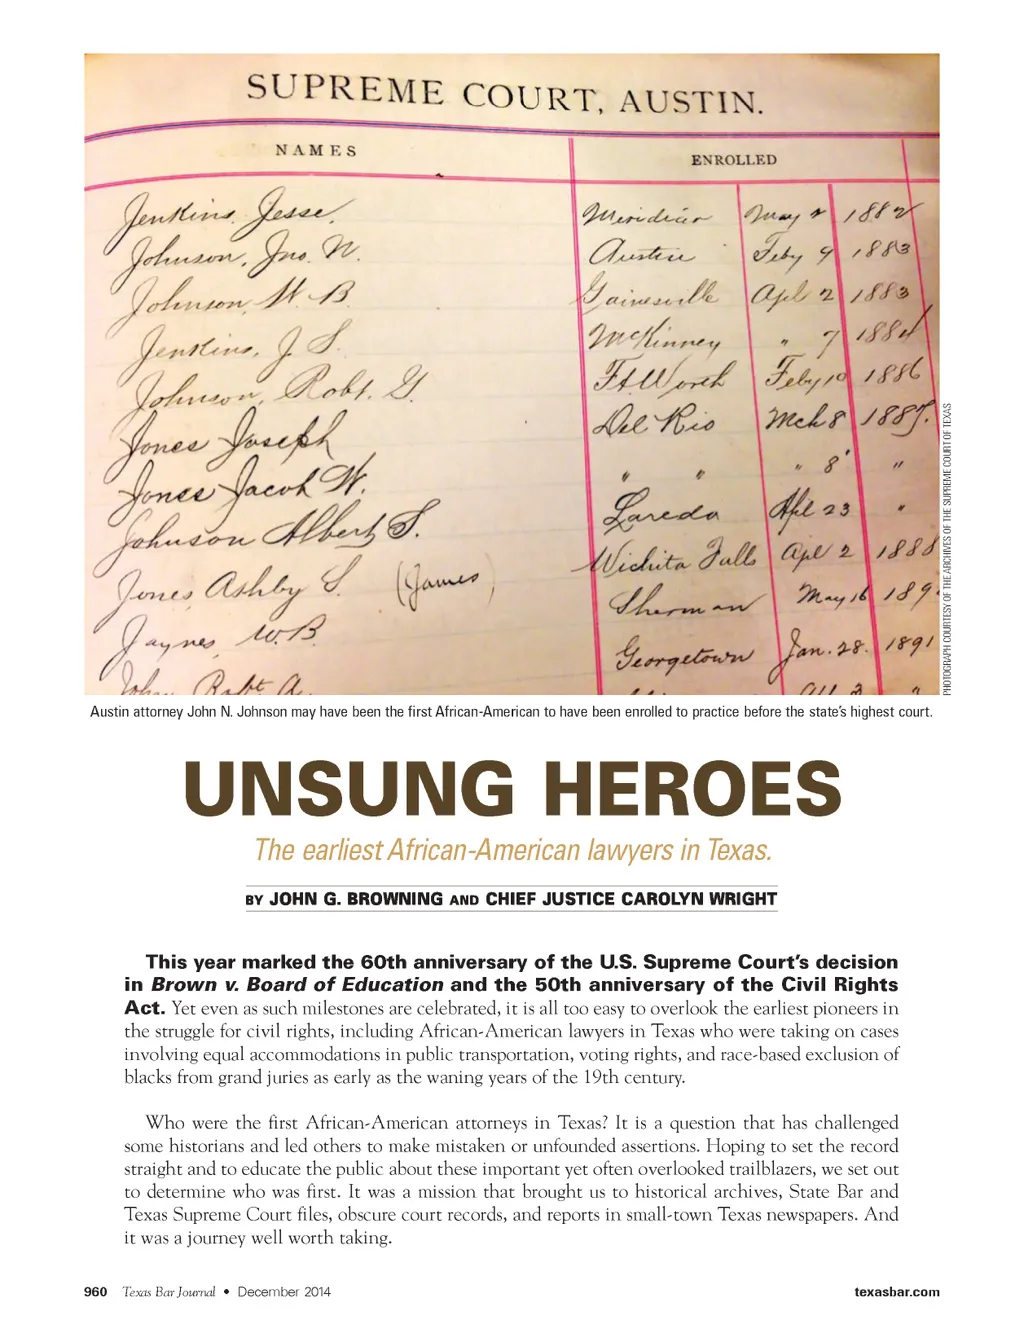 SUPREME COURT, AUSTIN.
NAMES ENROLLED
Jenkins, Jesse. Meridian May 2 1882
Johnson, Jno. N. Austin Feby 9 1883
Johnson, W. B. Gainesville Apl 2 1883
Jenkins, J. S. McKinney " 7 1884
Johnson, Robt. G. Ft. Worth Feby 10 1886
Jones Joseph Del Rio Mch 8 1887.
Jones Jacob W. " " " 8 "
Johnson Albert S. Laredo Apl 23 "
Jones, Ashby S. (James) Wichita Falls Apl 2 1888
Jaynes, W.B. Sherman May 16 189
Georgetown Jan. 28. 1891
Robt "
PHOTOGRAPH COURTESY OF THE ARCHIVES OF THE SUPREME COURT OF TEXAS
Austin attorney John N. Johnson may have been the first African-American to have been enrolled to practice before the state's highest court.
UNSUNG HEROES
The earliest African-American lawyers in Texas.
BY JOHN G. BROWNING AND CHIEF JUSTICE CAROLYN WRIGHT
This year marked the 60th anniversary of the U.S. Supreme Court's decision
in Brown v. Board of Education and the 50th anniversary of the Civil Rights
Act. Yet even as such milestones are celebrated, it is all too easy to overlook the earliest pioneers in
the struggle for civil rights, including African-American lawyers in Texas who were taking on cases
involving equal accommodations in public transportation, voting rights, and race-based exclusion of
blacks from grand juries as early as the waning years of the 19th century.
Who were the first African-American attorneys in Texas? It is a question that has challenged
some historians and led others to make mistaken or unfounded assertions. Hoping to set the record
straight and to educate the public about these important yet often overlooked trailblazers, we set out
to determine who was first. It was a mission that brought us to historical archives, State Bar and
Texas Supreme Court files, obscure court records, and reports in small-town Texas newspapers. And
it was a journey well worth taking.
960 Texas Bar Journal • December 2014 texasbar.com